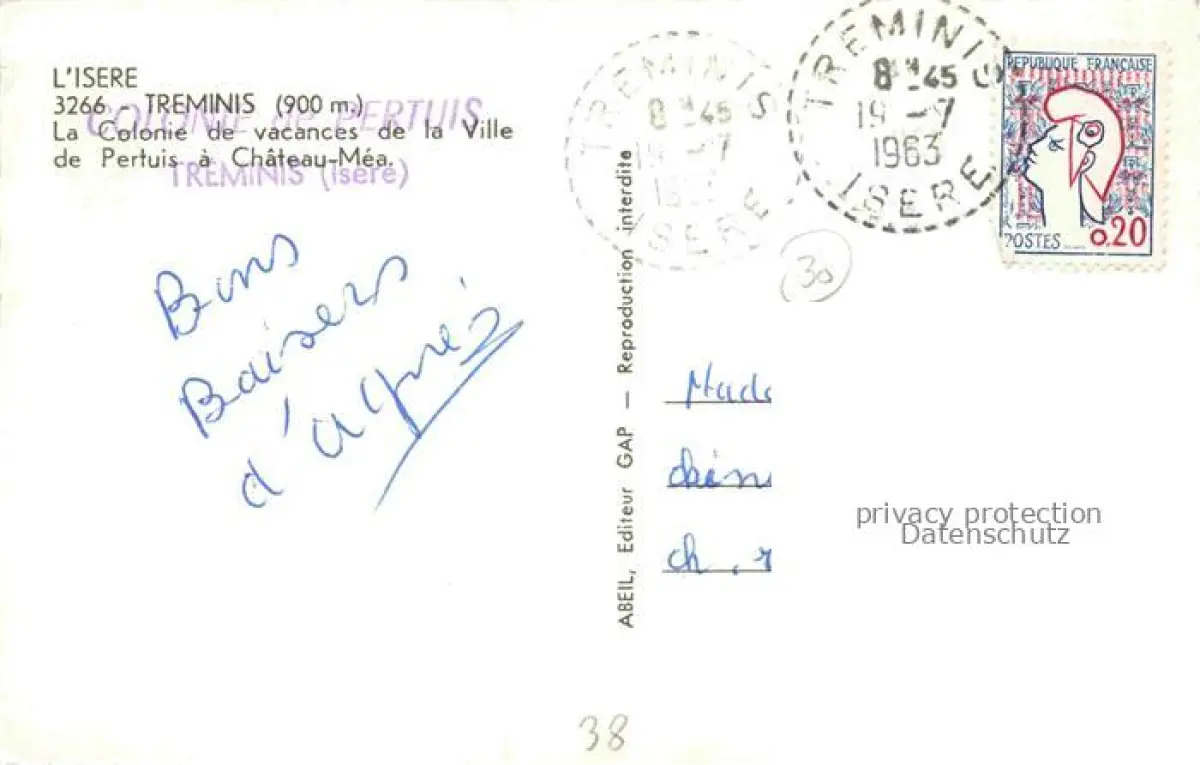 L'ISERE
3266 - TREMINIS (900 m.)
La Colonie de vacances de la Ville
de Pertuis à Château-Méa.
COLONIE de PERTUIS
TREMINIS (Isère)
Bons
Baisers
d'agnés
ABEIL, Editeur GAP — Reproduction interdite
TREMINIS
8 45
19 -7
ISERE
TREMINIS
8 45
19 -7
1963
ISERE
REPUBLIQUE FRANÇAISE
POSTES 0,20
30
Mada
ch
privacy protection
Datenschutz
38